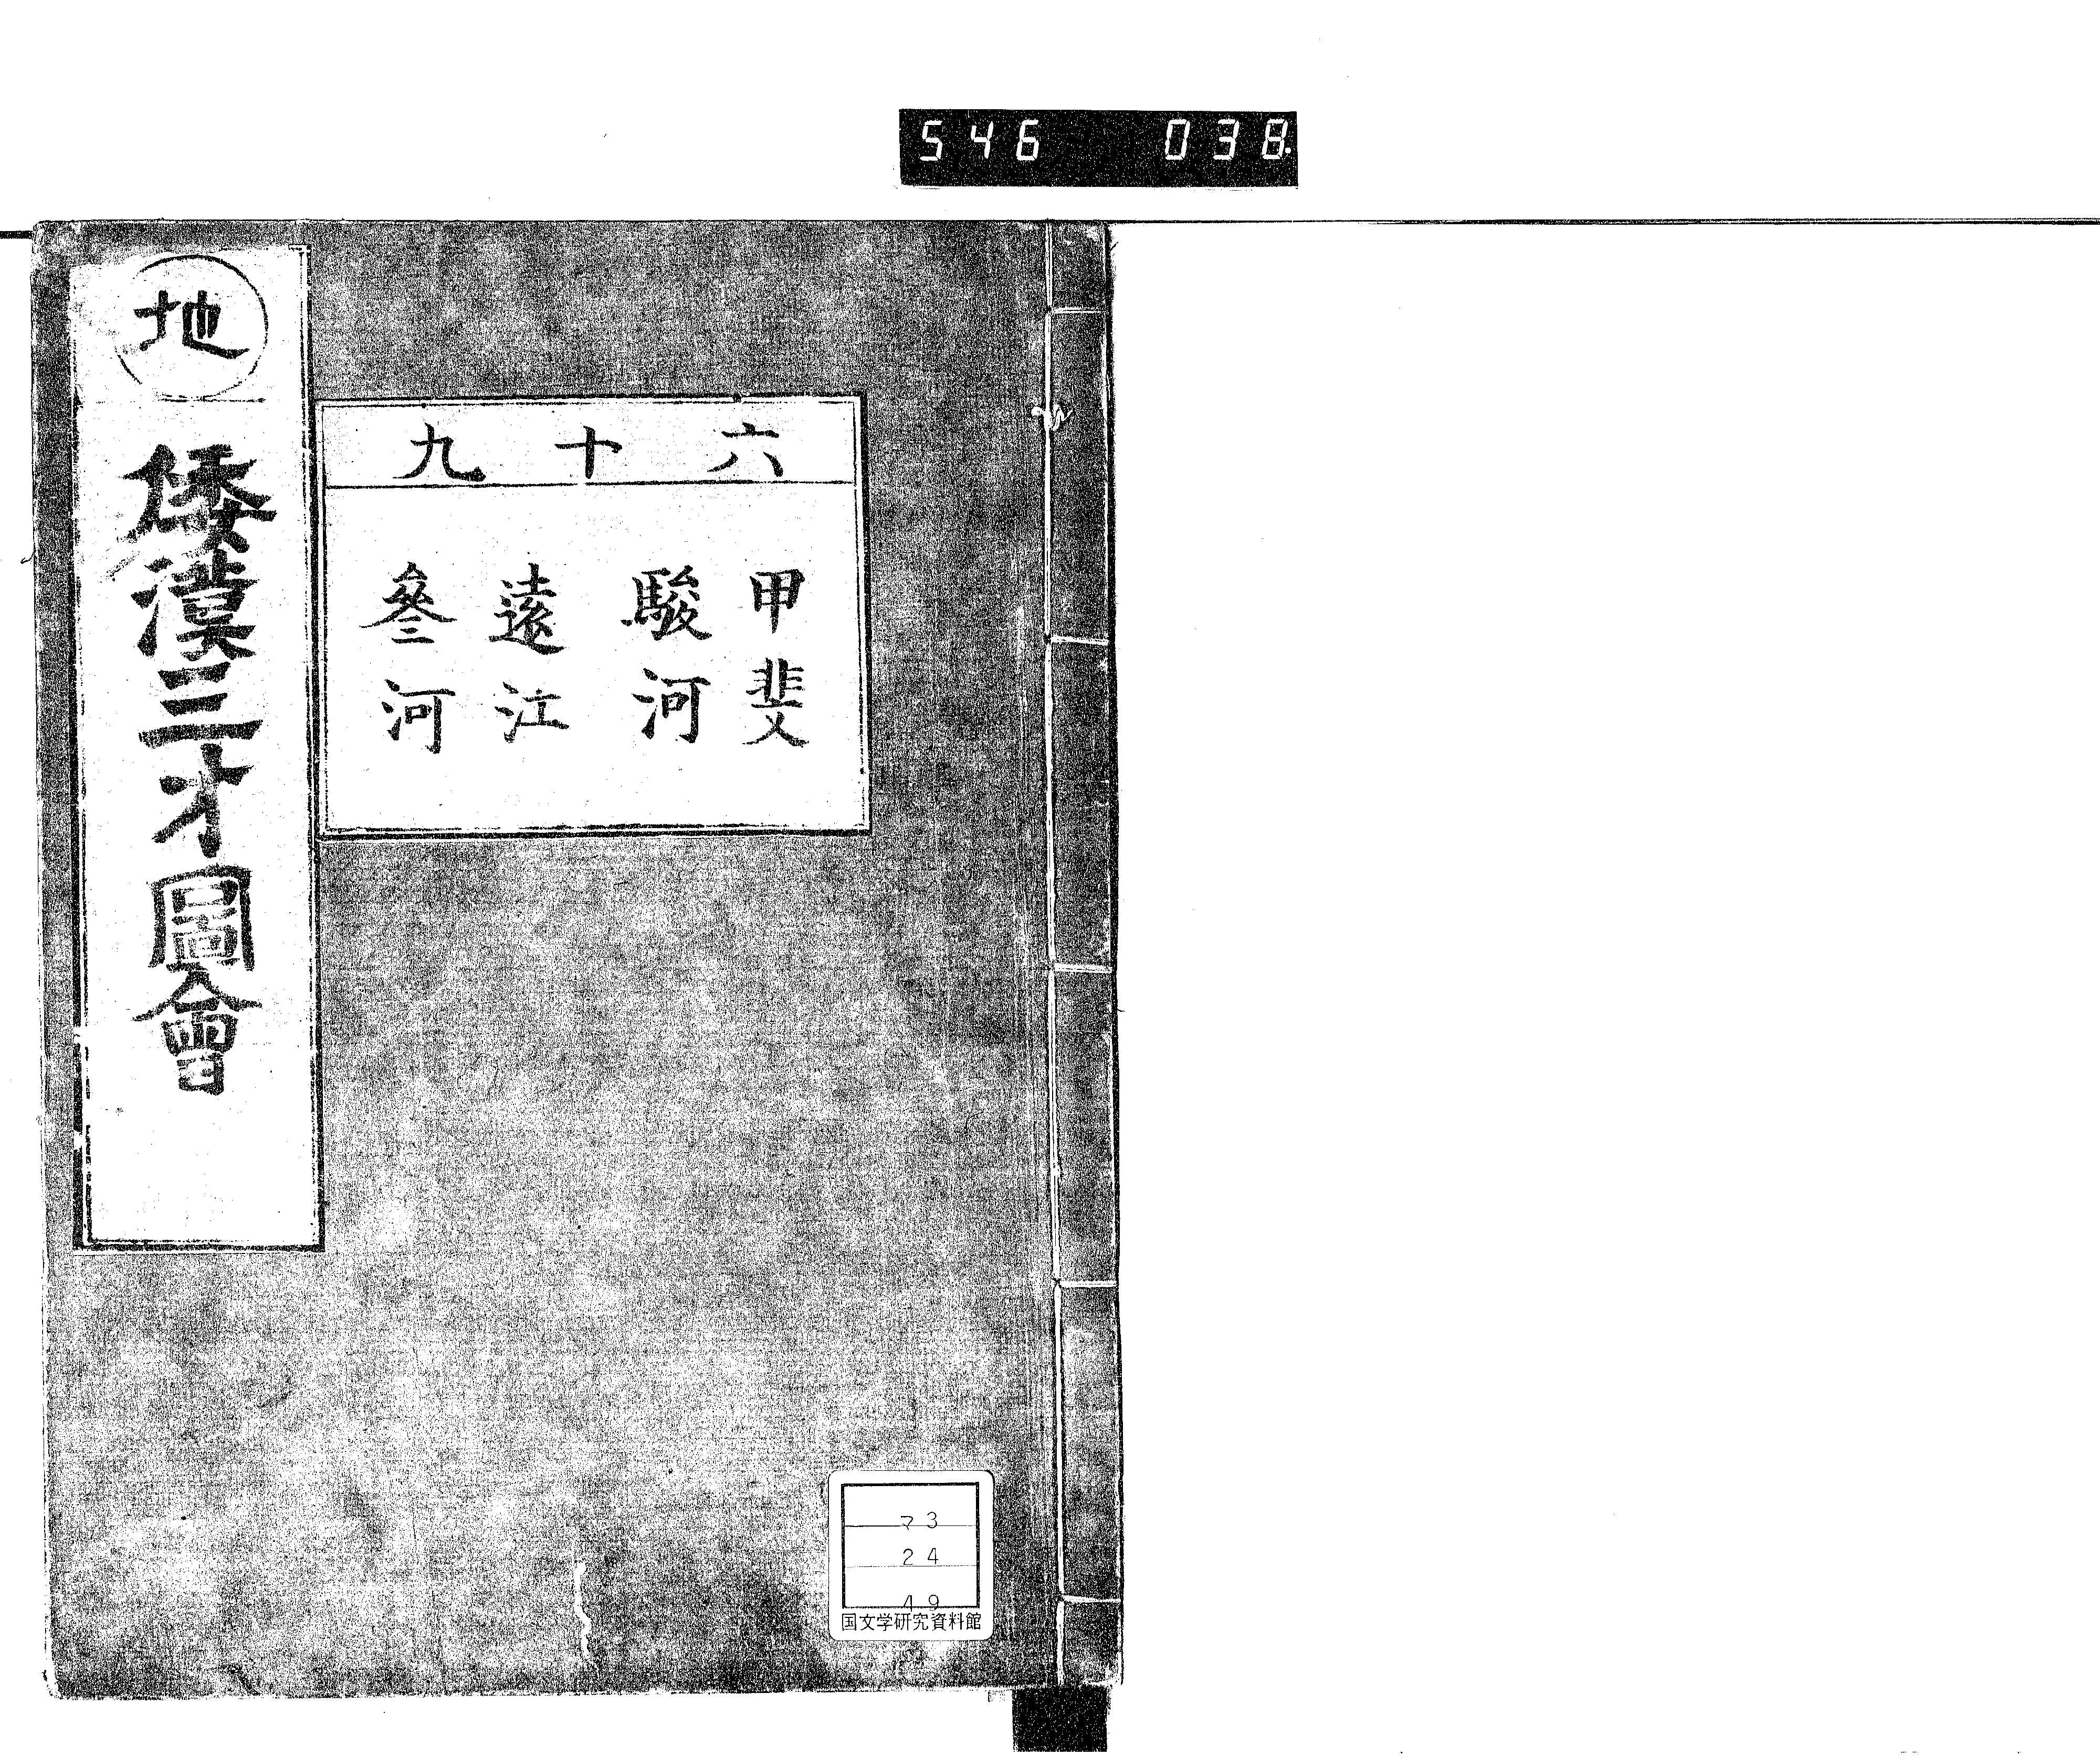 546 038.
地
倭漢三才圖會
六十九
甲斐
駿河
遠江
叄河
マ3
24
49
国文学研究資料館